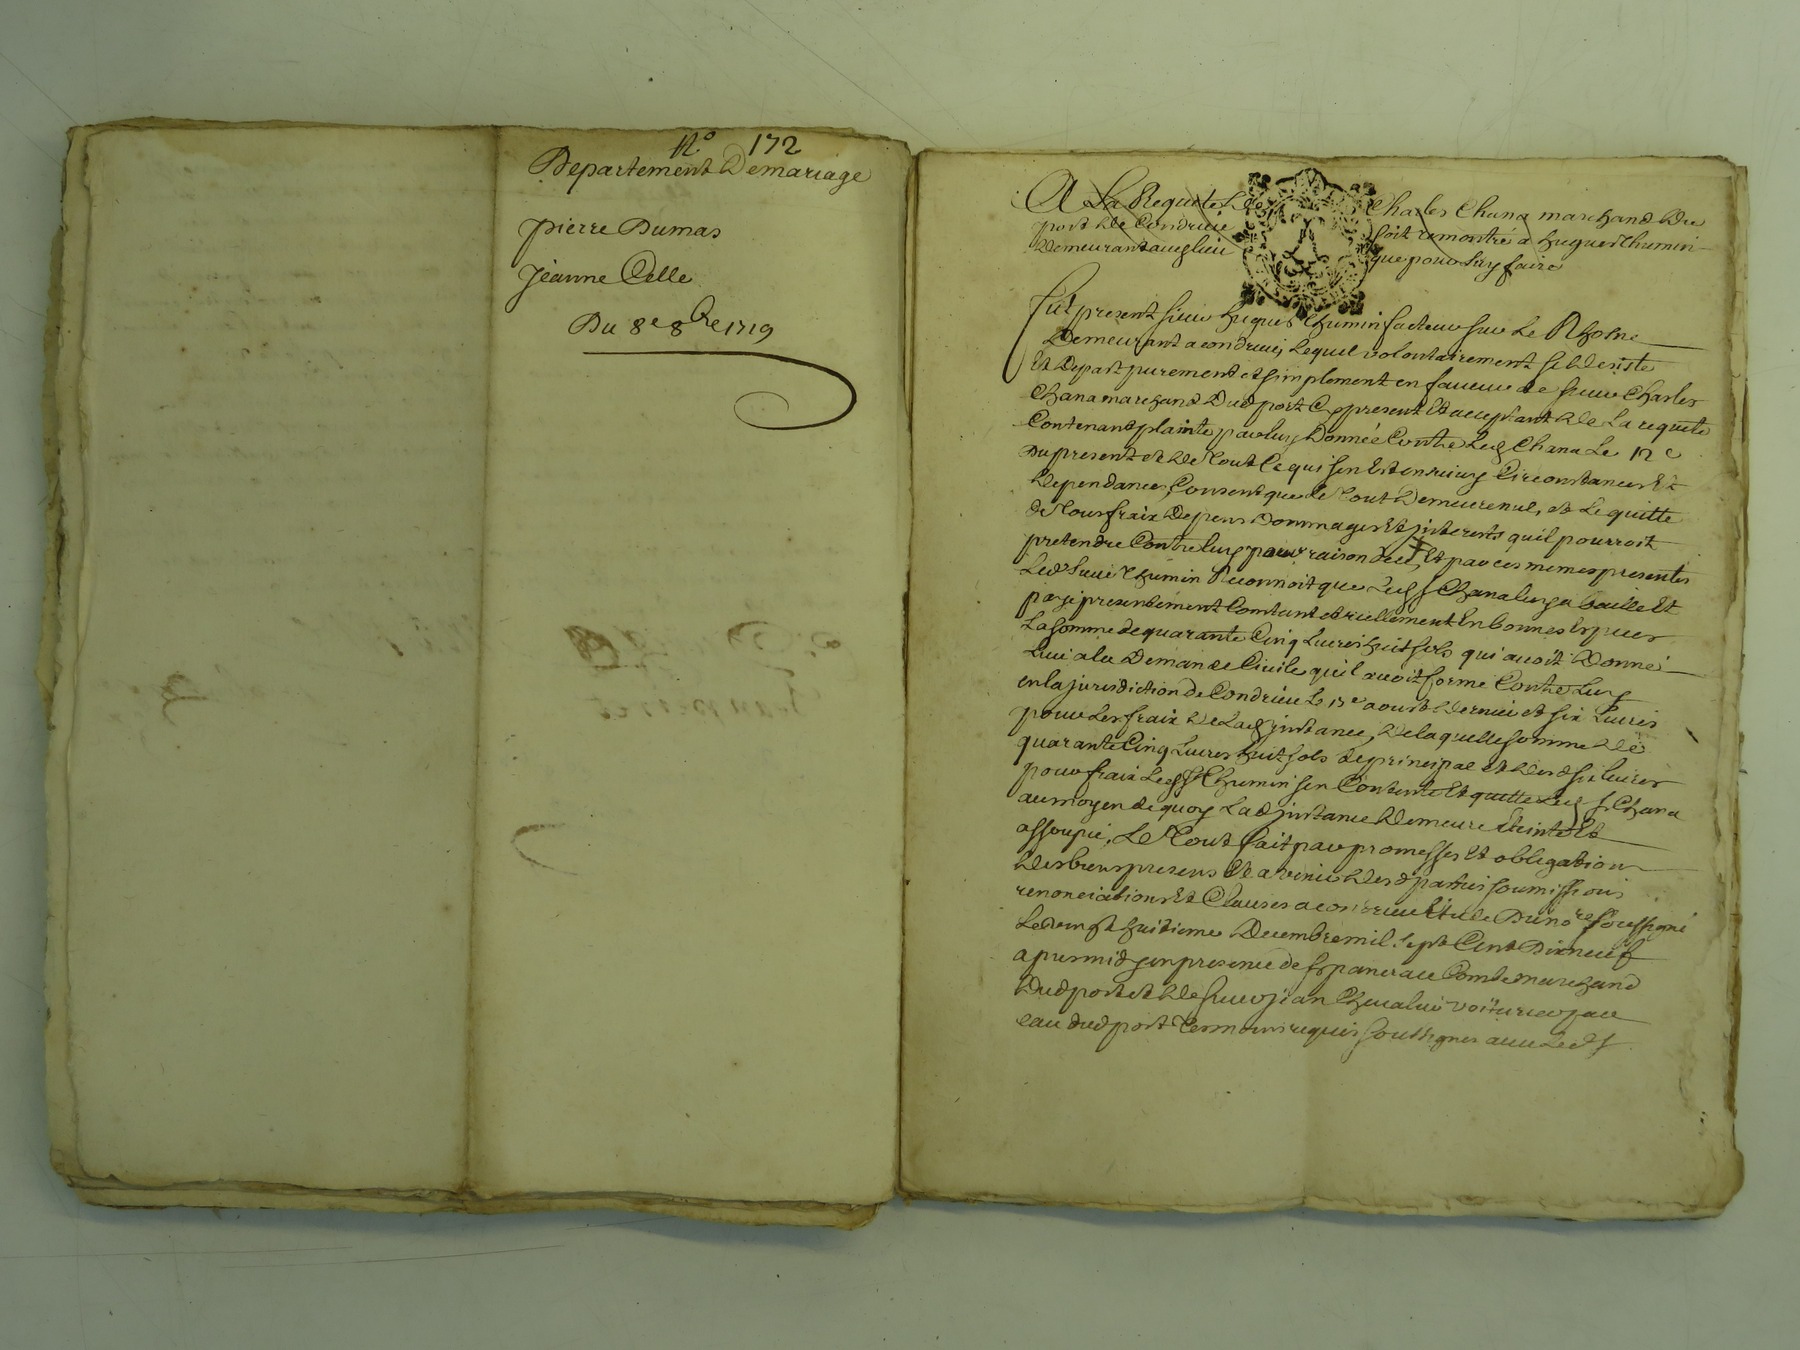 N.o 172
Departement Demariage
pierre Dumas
Jèanne Celle
Du 8e 8bre 1719
A La Requete de Charles Chana marchand Du
port de Condrieu soit remontré a hugues Thumin
Demeurant aud lieu que pour luy faire
Fut present sieur hugues Thumin facteur sur Le Rhosne
Demeurant a condrieu, Lequel volontairement se desiste
Et Depart purement et simplement en faveur de sieur Charles
Chana marchand Dud port Cy present Et acceptant de La requete
Contenant plainte par luy Donnée Contre Led Chana Le 12e
Du present et de Tout Ce qui sen Est ensuivy Circonstances Et
Dependances, Consent que Le Tout Demeure nul, et Le quitte
de Tous fraix Depens Dommages Et jnterests quil pourroit
pretendre Contre luy pour raison de ce, Et par ces memes presentes
Led sieur Thumin Reconnoit que Led s Chana luy a baillé Et
payé presentement Comtant et reellement En bonnes Especes
La somme de quarante Cinq Livres huit sols qui avoit Donné
Lieu a la Demande Civile quil avoit formé Contre Luy
en la jurisdiction de Condrieu Le aoust dernier et six Livres
pour Les fraix de Lad jnstance, de laquelle somme de
quarante Cinq Livres huit sols de principal et desd six livres
pour fraix Led s Thumin sen Contente Et quitte Led s Chana
au moyen de quoy La d jnstance demeure Eteinte Et
assoupie, Le Tout fait par promesses Et obligation
des biens presens Et a venir desd parties soumissions
renonciations Et Clauses a condrieu Etude Du nore soussigné
Le vingt huitieme Decembre mil sept Cent Dixneuf
apres midy en presence de sr pancrace Comte marchand
Dud port et de sieur jean Chevalier voiturier par
eau dud port Temoins requis soussignes avec Led s